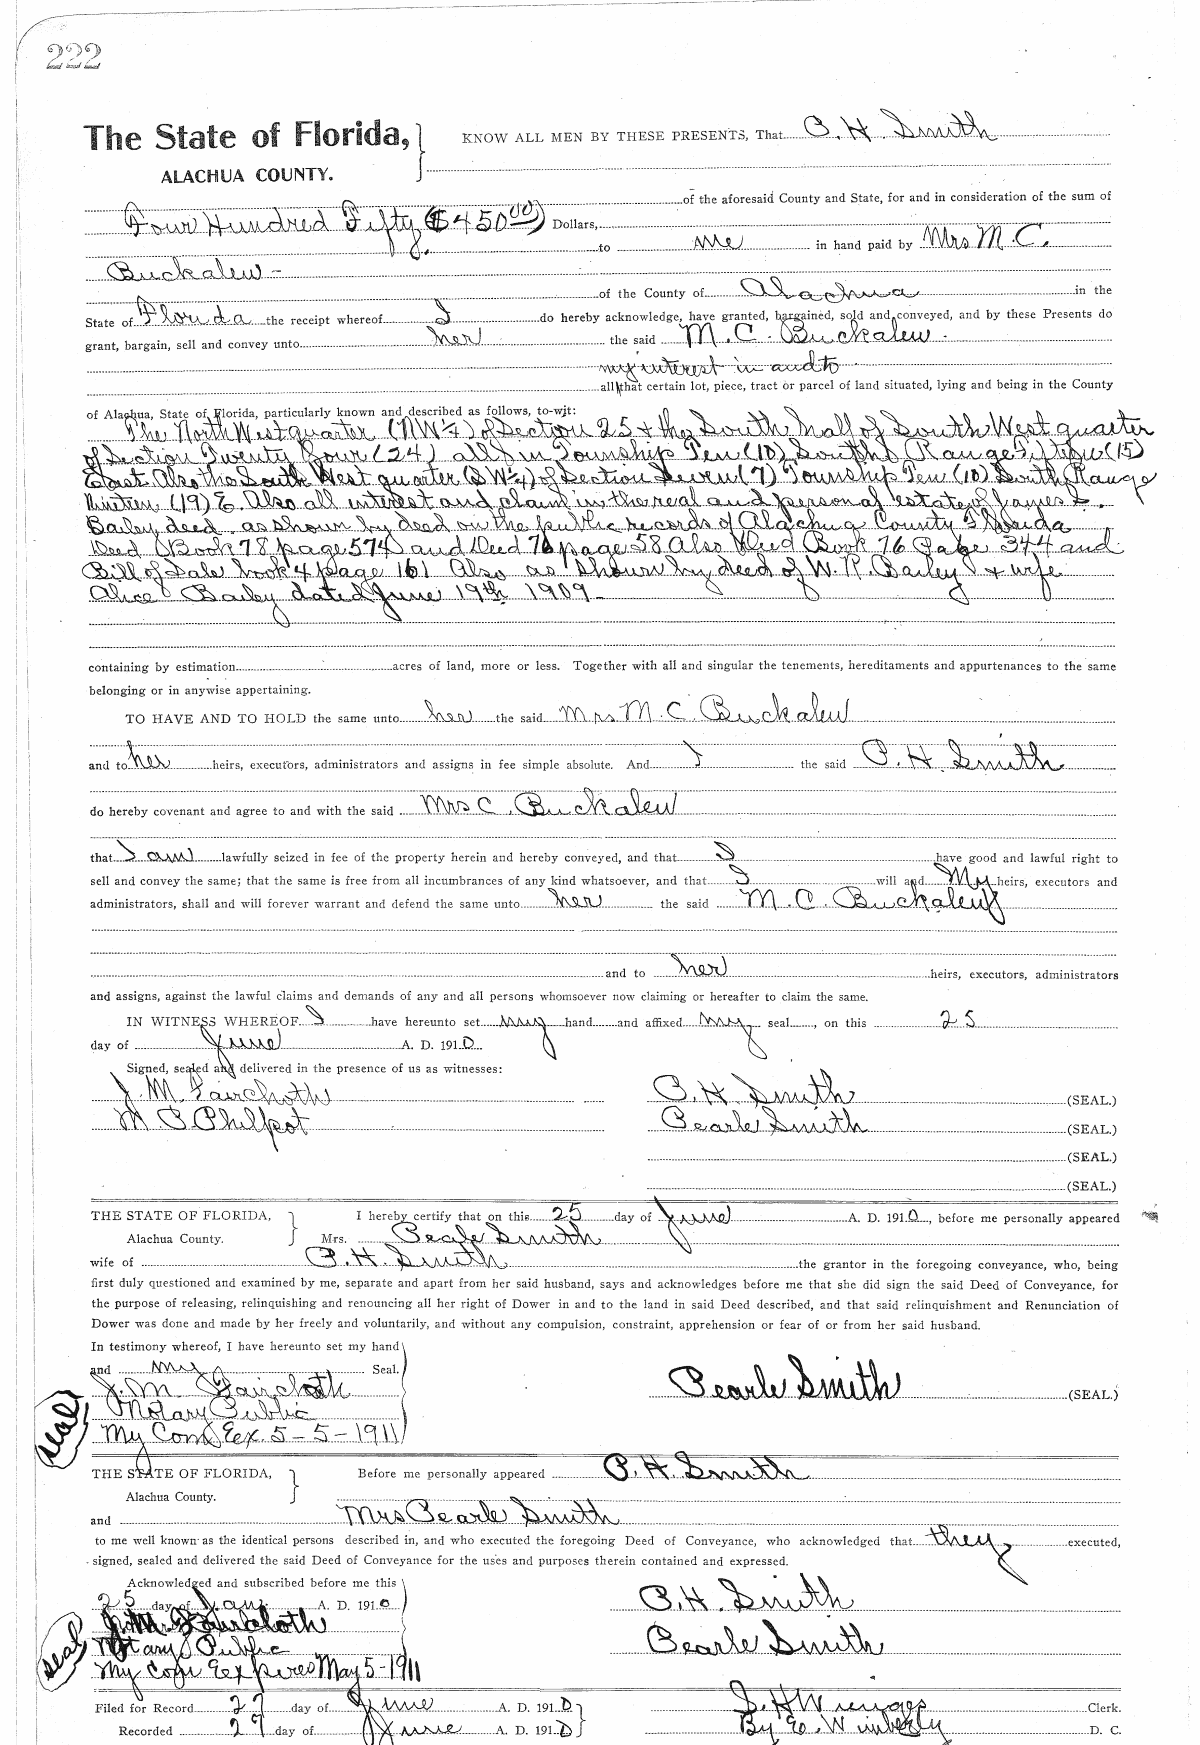 222
The State of Florida,
ALACHUA COUNTY.
KNOW ALL MEN BY THESE PRESENTS, That C. H. Smith
of the aforesaid County and State, for and in consideration of the sum of
Four Hundred Fifty ($450 00) Dollars,
to me in hand paid by Mrs M. C.
Buckalew -
of the County of Alachua in the
State of Florida the receipt whereof I do hereby acknowledge, have granted, bargained, sold and conveyed, and by these Presents do
grant, bargain, sell and convey unto her the said M. C. Buckalew.
my interest in and to
all that certain lot, piece, tract or parcel of land situated, lying and being in the County
of Alachua, State of Florida, particularly known and described as follows, to-wit:
The North West quarter (NW¼) of Section 25 & the South half of South West quarter
of Section Twenty Four (24) all in Township Ten (10) South Range Fifteen (15)
East Also the South West quarter (SW¼) of Section Seven (7) Township Ten (10) South Range
Nineteen (19) E. Also all interest and claim in the real and personal estate of James
Bailey deed as shown by deed on the public records of Alachua County Florida
Deed Book 78 page 574 and Deed 76 page 58 Also Deed Book 76 Page 344 and
Bill of Sale book 4 page 161 Also as shown by deed of W. R. Bailey & wife
Alice Bailey dated June 19th 1909 -
containing by estimation acres of land, more or less. Together with all and singular the tenements, hereditaments and appurtenances to the same
belonging or in anywise appertaining.
TO HAVE AND TO HOLD the same unto her the said Mrs M. C. Buckalew
and to her heirs, executors, administrators and assigns in fee simple absolute. And I the said C. H. Smith
do hereby covenant and agree to and with the said Mrs C. Buckalew
that I am lawfully seized in fee of the property herein and hereby conveyed, and that I have good and lawful right to
sell and convey the same; that the same is free from all incumbrances of any kind whatsoever, and that I will and My heirs, executors and
administrators, shall and will forever warrant and defend the same unto her the said M. C. Buckalew
and to her heirs, executors, administrators
and assigns, against the lawful claims and demands of any and all persons whomsoever now claiming or hereafter to claim the same.
IN WITNESS WHEREOF I have hereunto set my hand and affixed my seal, on this 25
day of June A. D. 1910.
Signed, sealed and delivered in the presence of us as witnesses:
J. M. Faircloth C. H. Smith (SEAL.)
M C Philpot Pearle Smith (SEAL.)
(SEAL.)
(SEAL.)
THE STATE OF FLORIDA,
Alachua County.
I hereby certify that on this 25 day of June A. D. 1910, before me personally appeared
Mrs. Pearle Smith
wife of C. H. Smith the grantor in the foregoing conveyance, who, being
first duly questioned and examined by me, separate and apart from her said husband, says and acknowledges before me that she did sign the said Deed of Conveyance, for
the purpose of releasing, relinquishing and renouncing all her right of Dower in and to the land in said Deed described, and that said relinquishment and Renunciation of
Dower was done and made by her freely and voluntarily, and without any compulsion, constraint, apprehension or fear of or from her said husband.
In testimony whereof, I have hereunto set my hand
and my Seal.
J. M. Faircloth
Pearle Smith (SEAL.)
Notary Public
My Com Ex. 5-5-1911
seal
THE STATE OF FLORIDA,
Alachua County.
Before me personally appeared C. H. Smith
and Mrs Pearle Smith
to me well known as the identical persons described in, and who executed the foregoing Deed of Conveyance, who acknowledged that they executed,
signed, sealed and delivered the said Deed of Conveyance for the uses and purposes therein contained and expressed.
Acknowledged and subscribed before me this
25 day of A. D. 1910
C. H. Smith
J. M. Faircloth
Notary Public
Pearle Smith
My Com Expires May 5-1911
seal
Filed for Record 27 day of June A. D. 1910 S. H Wienges Clerk.
Recorded 29 day of June A. D. 1910 By E. Wimberly D. C.